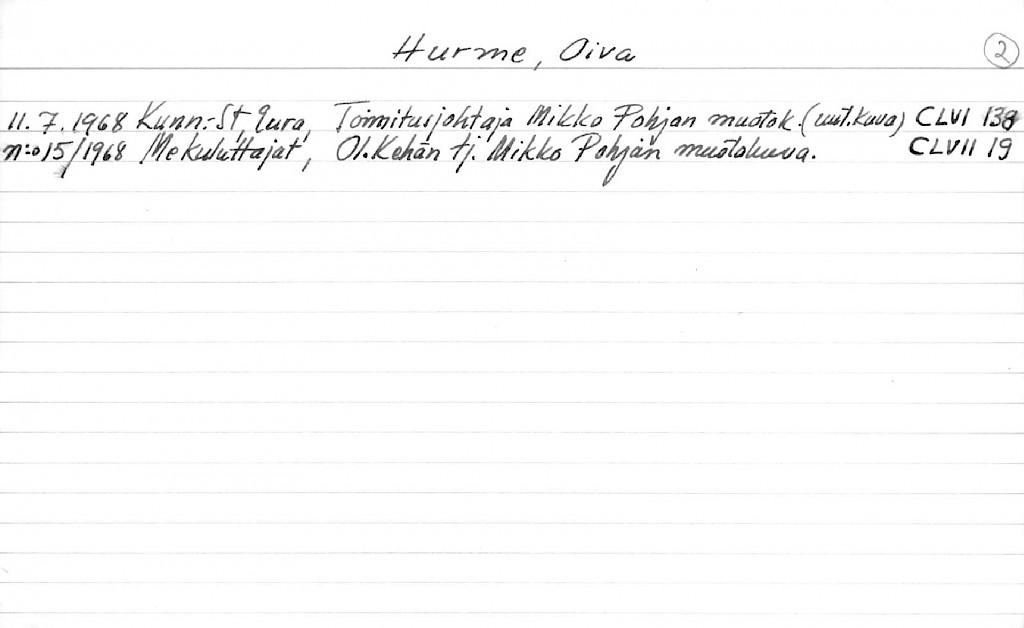 Hurme, Oiva 2
11.7.1968 Kunn:-St, Eura, Toimitusjohtaja Mikko Pohjan muotok. (uut.kuva) CLVI 138
n:o 15/1968 Me kuluttajat, Ol.Kehän tj. Mikko Pohjan muotokuva. CLVII 19